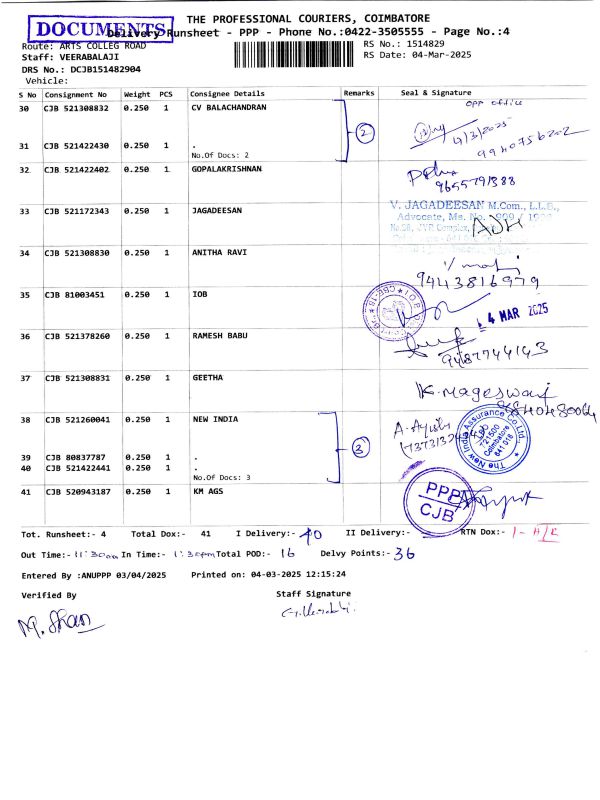 THE PROFESSIONAL COURIERS, COIMBATORE
DOCUMENTS
Delivery Runsheet - PPP - Phone No.:0422-3505555 - Page No.:4
Route: ARTS COLLEG ROAD
RS No.: 1514829
Staff: VEERABALAJI
RS Date: 04-Mar-2025
DRS No.: DCJB151482904
Vehicle:
S No Consignment No Weight PCS Consignee Details Remarks Seal & Signature
30 CJB 521308832 0.250 1 CV BALACHANDRAN
OPP office
4/3/2025
9940756202
2
31 CJB 521422430 0.250 1 .
No.Of Docs: 2
32 CJB 521422402 0.250 1 GOPALAKRISHNAN
9655791388
33 CJB 521172343 0.250 1 JAGADEESAN
V. JAGADEESAN M.Com., L.L.B.,
Advocate, Ms. No.
34 CJB 521308830 0.250 1 ANITHA RAVI
9443816979
35 CJB 81003451 0.250 1 IOB
4 MAR 2025
36 CJB 521378260 0.250 1 RAMESH BABU
9487744143
37 CJB 521308831 0.250 1 GEETHA
K. Mageswari
38 CJB 521260041 0.250 1 NEW INDIA
3
The New India Assurance Co. Ltd.
721500
Coimbatore
641 018
39 CJB 80837787 0.250 1 .
40 CJB 521422441 0.250 1 .
No.Of Docs: 3
41 CJB 520943187 0.250 1 KM AGS
PPP
CJB
Tot. Runsheet:- 4 Total Dox:- 41 I Delivery:- 40 II Delivery:- RTN Dox:- 1 -
Out Time:- 11:30am In Time:- 1:30pm Total POD:- 16 Delvy Points:- 36
Entered By :ANUPPP 03/04/2025 Printed on: 04-03-2025 12:15:24
Verified By Staff Signature